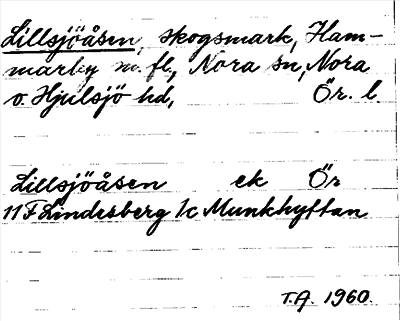 Lillsjöåsen, skogsmark, Ham-
marby m. fl., Nora sn, Nora
o. Hjulsjö hd, Ör. l.
Lillsjöåsen ek Ör
11 F Lindesberg 1c Munkhyttan
T.A. 1960.